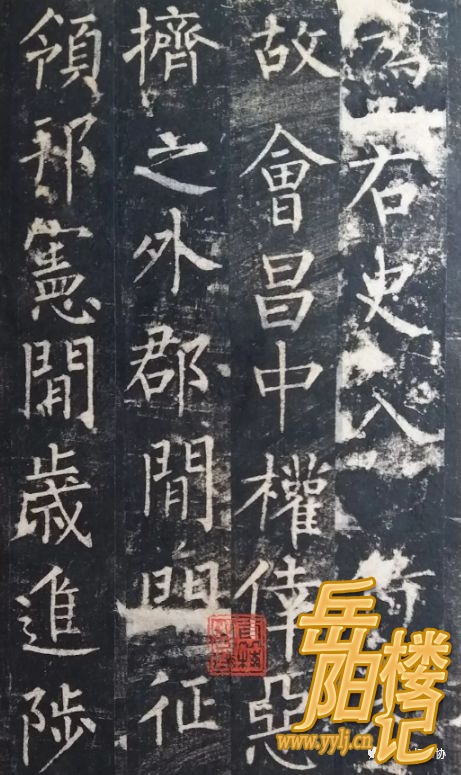 為右史
故會昌中權倖惡
擠之外郡閒征
領邦憲閒歲進陟
岳阳楼记
www.yylj.cn
协